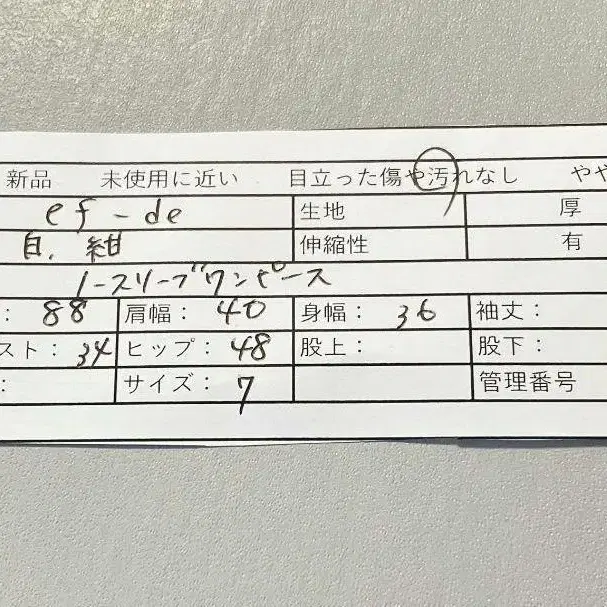 新品 未使用に近い 目立った傷や汚れなし やや
ef-de 生地 厚
白、紺 伸縮性 有
ノースリーブワンピース
: 88 肩幅: 40 身幅: 36 袖丈:
スト: 34 ヒップ: 48 股上: 股下:
: サイズ: 7 管理番号